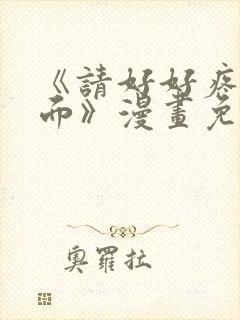 《請好好疼
而》漫畫免
奧羅拉